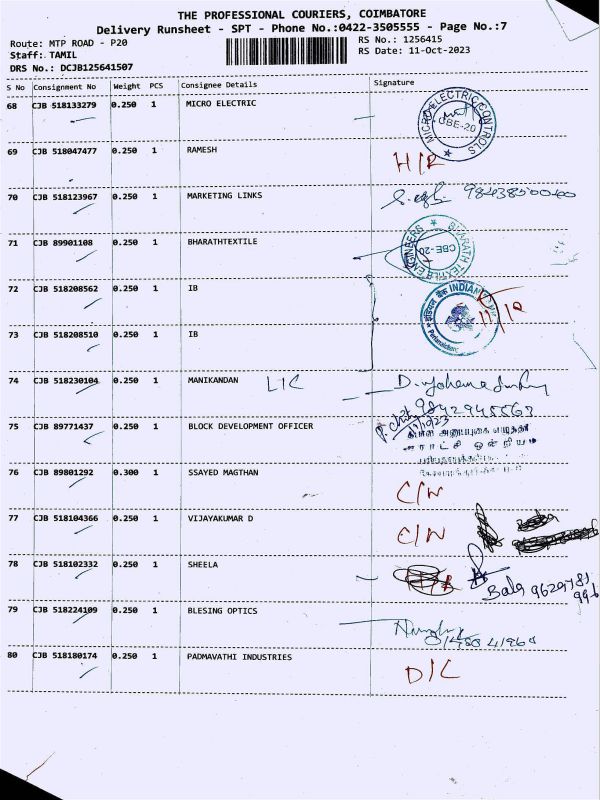 THE PROFESSIONAL COURIERS, COIMBATORE
Delivery Runsheet - SPT - Phone No.:0422-3505555 - Page No.:7
Route: MTP ROAD - P20
RS No.: 1256415
Staff: TAMIL
RS Date: 11-Oct-2023
DRS No.: DCJB125641507
S No Consignment No Weight PCS Consignee Details Signature
68 CJB 518133279 0.250 1 MICRO ELECTRIC
MICRO ELECTRIC CONTROLS
CBE-20
69 CJB 518047477 0.250 1 RAMESH
70 CJB 518123967 0.250 1 MARKETING LINKS
71 CJB 89901108 0.250 1 BHARATHTEXTILE
BHARATH TEXTILE ENGINEERS
CBE-20
72 CJB 518208562 0.250 1 IB
INDIAN
11/10
73 CJB 518208510 0.250 1 IB
74 CJB 518230104 0.250 1 MANIKANDAN LIC
75 CJB 89771437 0.250 1 BLOCK DEVELOPMENT OFFICER
76 CJB 89801292 0.300 1 SSAYED MAGTHAN
C/N
77 CJB 518104366 0.250 1 VIJAYAKUMAR D
C/N
78 CJB 518102332 0.250 1 SHEELA
Bala 9629781
79 CJB 518224109 0.250 1 BLESING OPTICS
80 CJB 518180174 0.250 1 PADMAVATHI INDUSTRIES
D/C